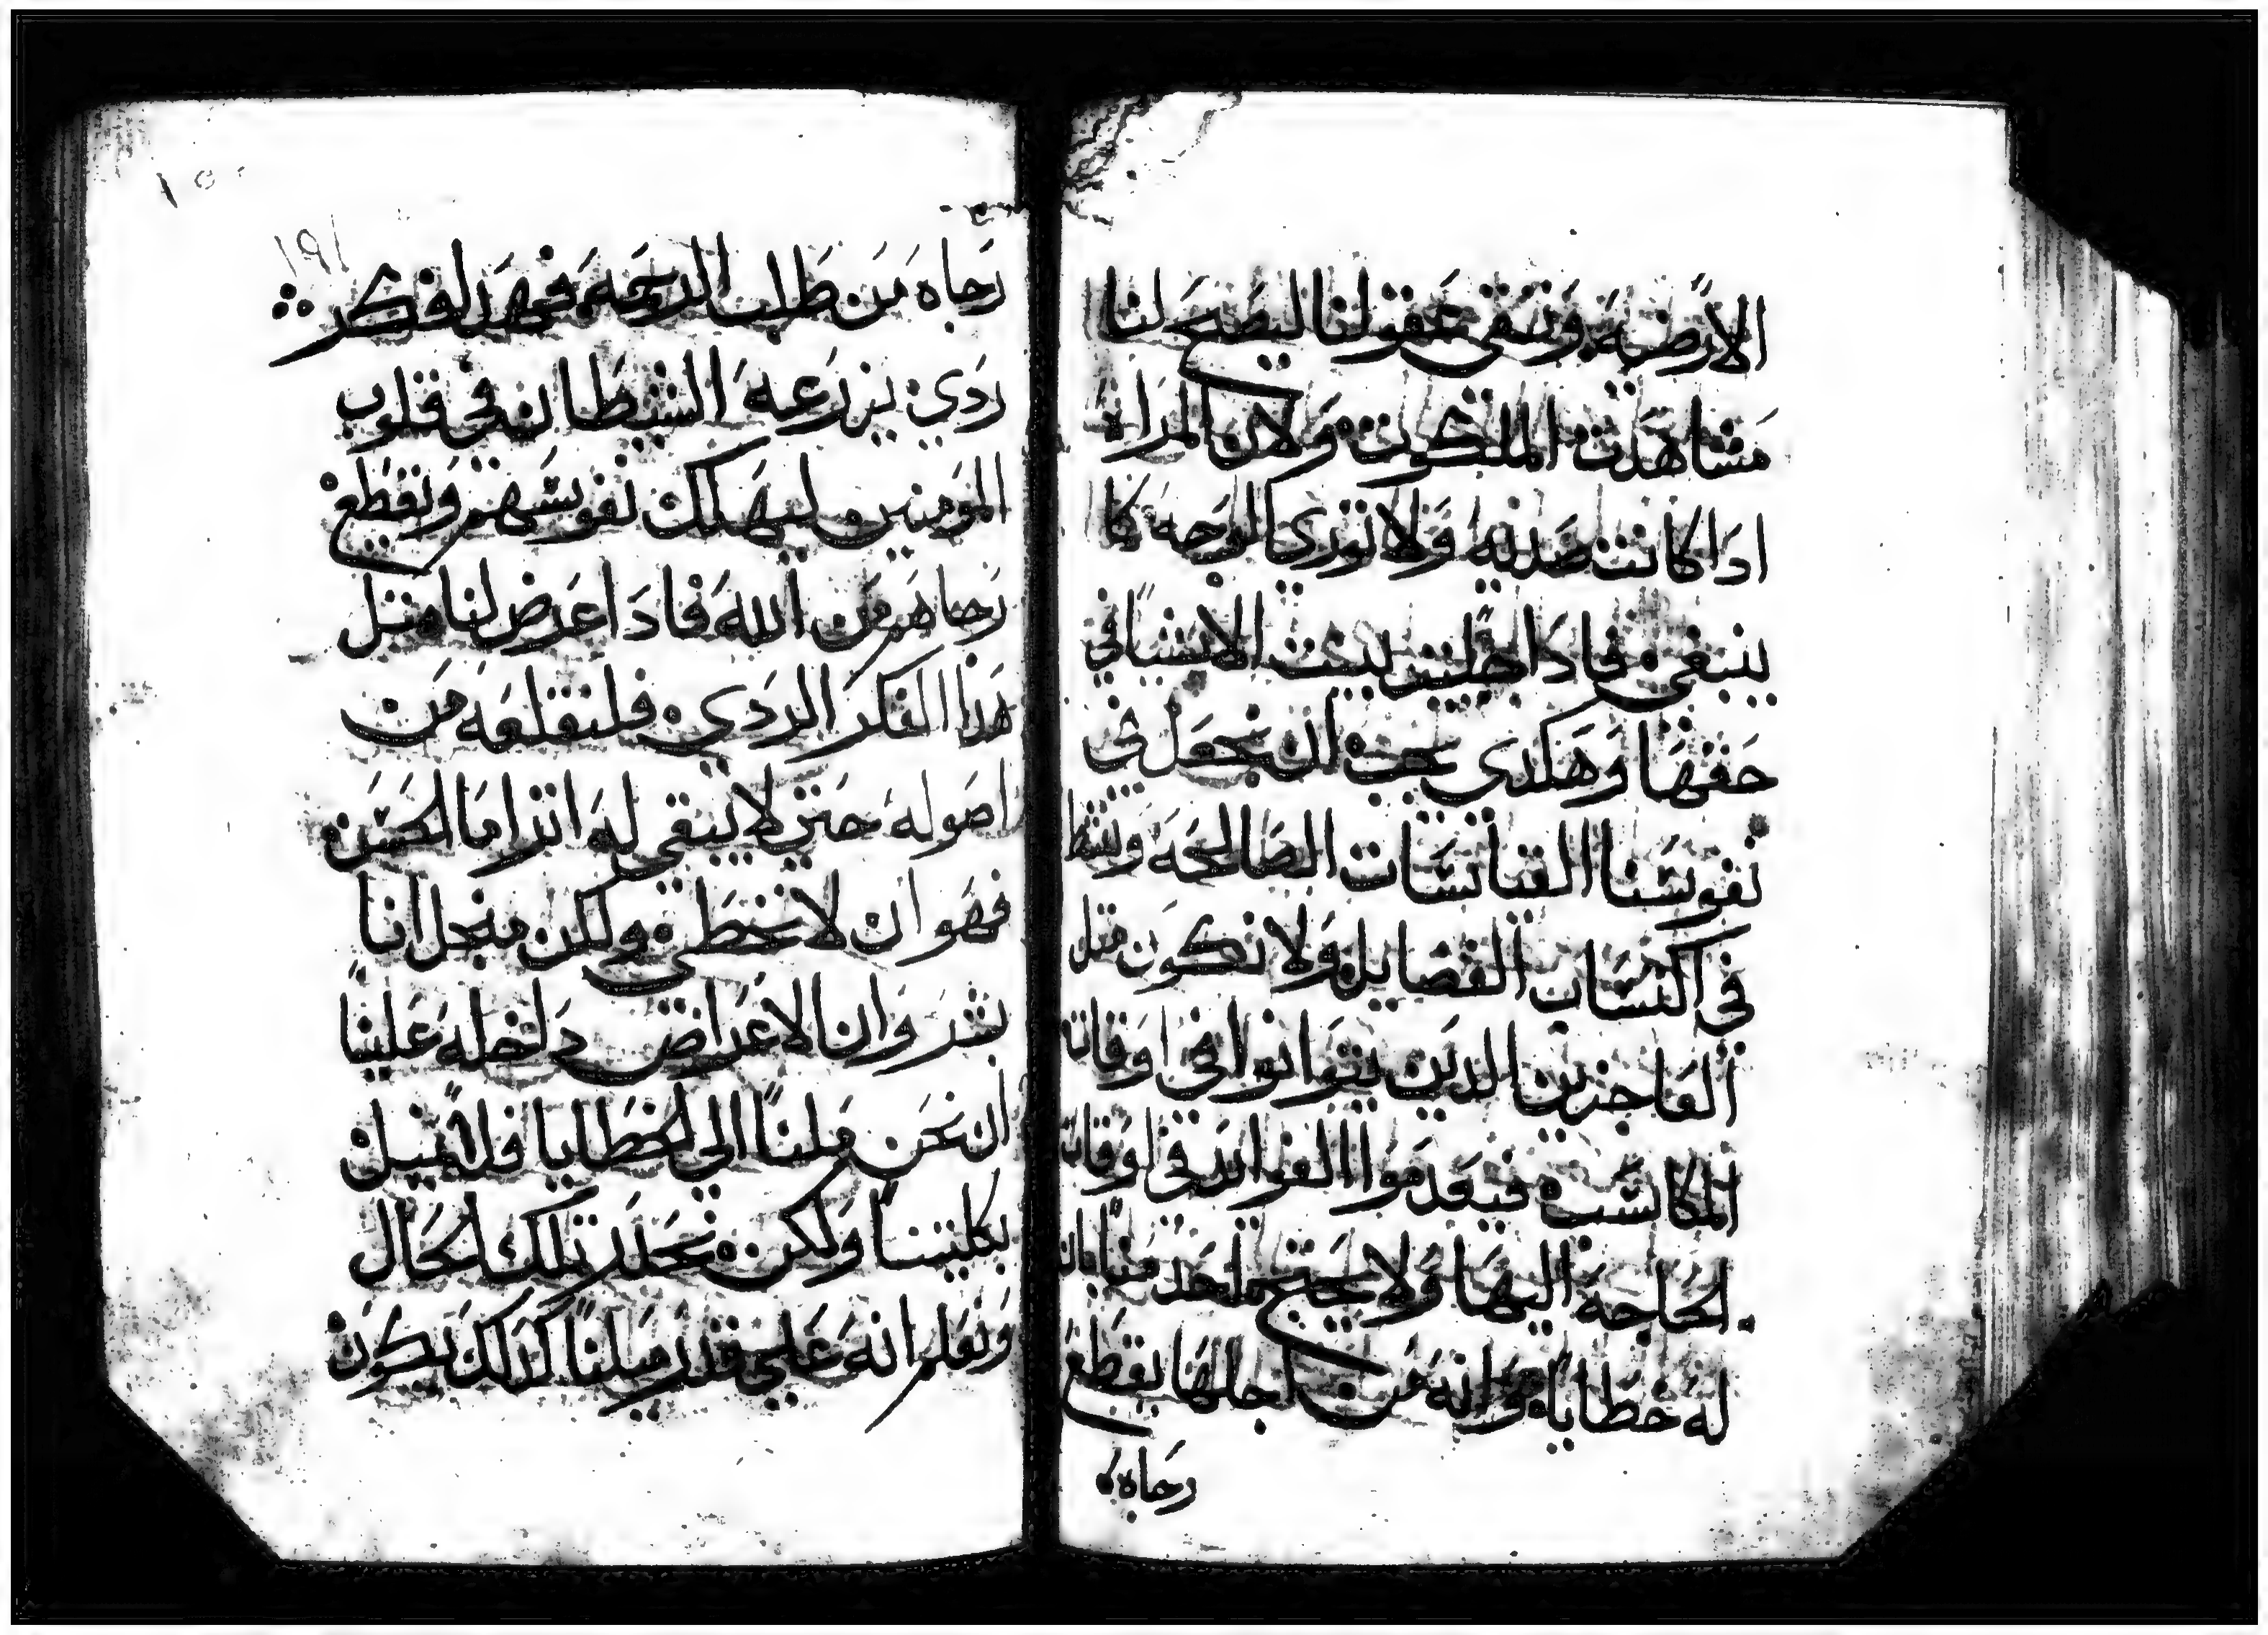 الارضية وتنقي عقولنا ليصح لنا
مشاهدت الملكوت ولان المراه
ادا كانت صديه ولا تورى الوجه كما
ينبغي فادا جليت ليثت الاشيا في
حقها وهكدى يجب ان نجعل في
نفوسنا القناتسات الصالحه
في اكتساب الفضايل ولا نكون متل
العاجزين الدين يتوانوا في اوقات
المكاسب فيعدموا الفوايد في اوقات
الحاجة اليها ولا يحتج احد منا بان
له خطاياه وانه من اجلها يقطع
رجاه
١٥٠
١٩١
رجاه من طلب الرحمه فهدا فكر
ردي يزرعه الشيطان في قلوب
المومنين ليهلك نفوسهم ويقطع
رجاهم من الله فادا عرض لنا متل
هدا الفكر الردي فلنقلعه من
اصوله حتي لا يبقي له اتر اما الحسن
فهو ان لا نخطي ولكن منجل اننا
بشر وان الاعراض دلخله علينا
ان نحن ملنا الي الخطايا فلا نميل
بكليتنا ولكن نحدر تلك الحال
ونعلم انه علي قدر ميلنا كدلك يكون